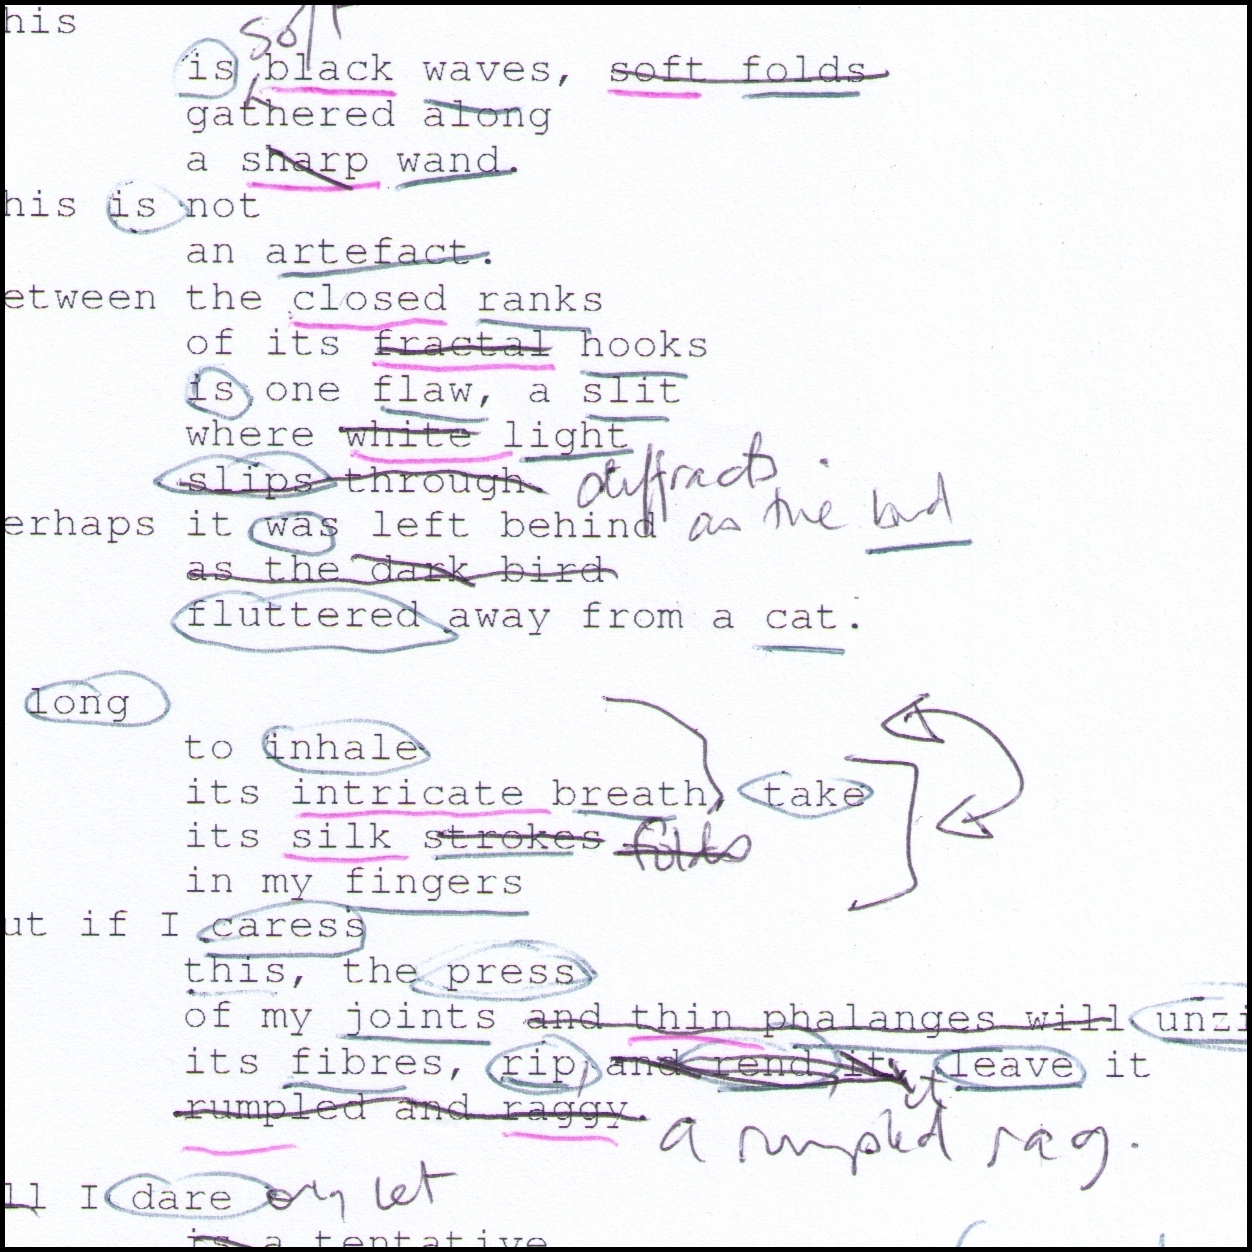 his
soft
is black waves, soft folds
gathered along
a sharp wand.
his is not
an artefact.
etween the closed ranks
of its fractal hooks
is one flaw, a slit
where white light
slips through. diffracts
erhaps it was left behind as the bird
as the dark bird
fluttered away from a cat.
long
to inhale
its intricate breath, take
its silk strokes folds
in my fingers
ut if I caress
this, the press
of my joints and thin phalanges will unzi
its fibres, rip, and rend it, leave it
it
rumpled and raggy. a rumpled rag.
ll I dare only let
is a tentative